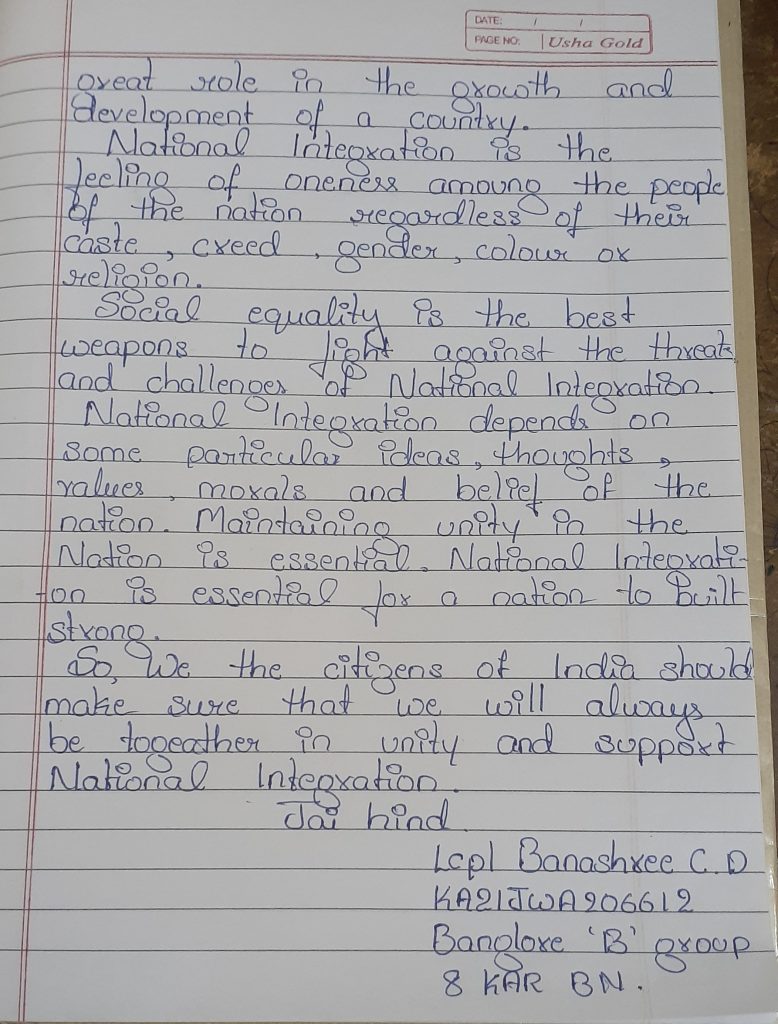 DATE: / /
PAGE NO: Usha Gold
great role in the growth and
development of a country.
National Integration is the
feeling of oneness amoung the people
of the nation regardless of their
caste, creed, gender, colour or
religion.
Social equality is the best
weapons to fight against the threats
and challenges of National Integration.
National Integration depends on
some particular ideas, thoughts,
values, morals and belief of the
nation. Maintaining unity in the
Nation is essential. National Integrati-
-on is essential for a nation to built
strong.
So, We the citizens of India should
make sure that we will always
be togeather in unity and support
National Integration.
Jai hind
Lcpl Banashree C.D
KA21JWA206612
Banglore 'B' group
8 KAR BN.